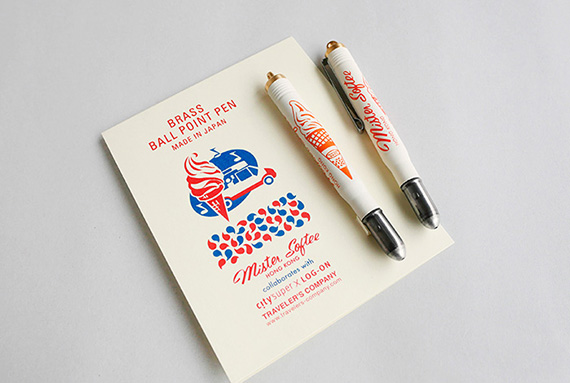 BRASS
BALL POINT PEN
MADE IN JAPAN
Mister Softee
HONG KONG
collaborates with
city'super x LOG-ON
TRAVELER'S COMPANY
www.travelers-company.com
Mister Softee